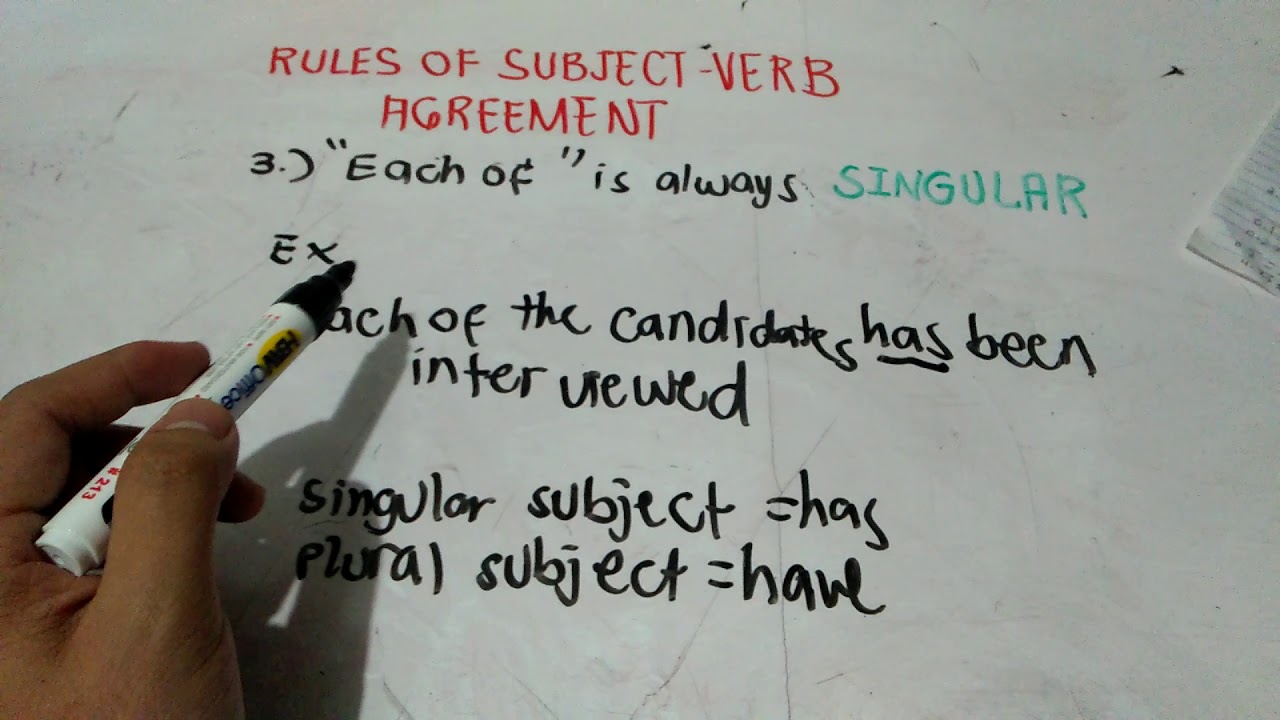 RULES OF SUBJECT-VERB
AGREEMENT
3.) "Each of" is always SINGULAR
Ex
ach of the candidates has been
interviewed
singular subject = has
plural subject = have
HBW Office
# 213